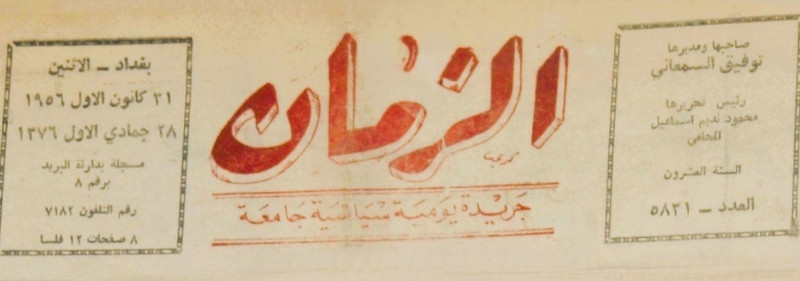 صاحبها ومديرها
توفيق السمعاني
رئيس تحريرها
محمود نديم اسماعيل
المحامي
السنة العشرون
العدد ــ ٥٨٣١
الزمان
جريدة يومية سياسية جامعة
بغداد ــ الاثنين
٣١ كانون الاول ١٩٥٦
٢٨ جمادي الاول ١٣٧٦
مسجلة بدارئة البريد
برقم ٨
رقم التلفون ٧١٨٢
٨ صفحات ١٢ فلسا